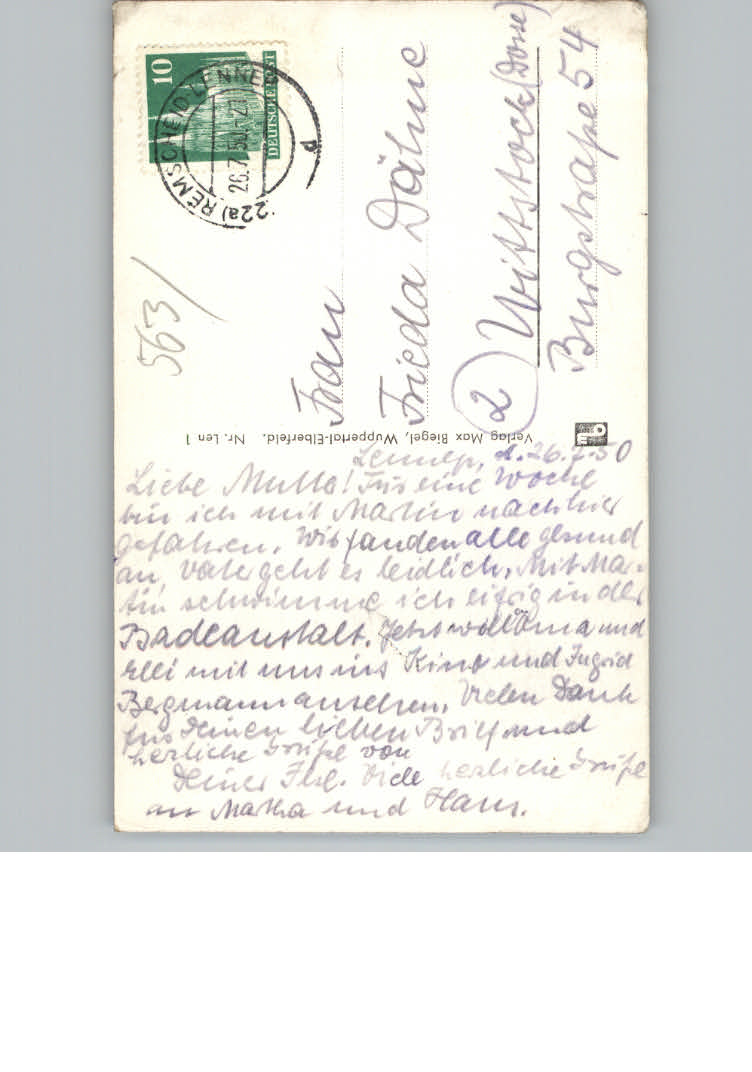 10
DEUTSCHE POST
(22a) REMSCHEID-LENNEP
26.7.50
d
563/
Frau
Frieda Dähne
(2) Wittstock (Dosse)
Burgstraße 54
Verlag Max Biegel, Wuppertal-Elberfeld. Nr. Len 1
Lennep, d. 26.7.50
Liebe Mutta! Für eine Woche
bin ich mit Martin nach hier
gefahren. Wir fanden alle gesund
an, Vater geht es leidlich. Mit Mar-
tin schwimme ich eifrig in der
Badeanstalt. Jetzt will Oma und
Elli mit uns ins Kino und Ingrid
Bergmann ansehen. Vielen Dank
für Deinen lieben Brief und
herzliche Grüße von
Deiner Ilse. Viele herzliche Grüße
an Martha und Hans.